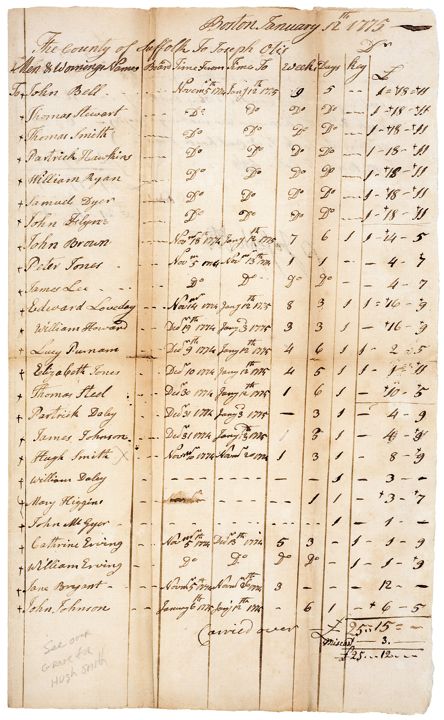 Boston January 12th 1775
The County of Suffolk To Joseph Otis Dr
Men & Womings Names Board Time From Time To Weeks Days Key £
To John Bell Novm 5th 1774 Jany 12th 1775 9 5 1=18=11
Thomas Stewart Do Do Do Do 1-18-11
Thomas Smith Do Do Do Do 1-18-11
Partrick Hawkins Do Do Do Do 1-18-11
William Ryan Do Do Do Do 1-18-11
Samuel Dyer Do Do Do Do 1-18-11
John Flynn Do Do Do Do 1-18-11
John Brown Novr 18th 1774 Jany 12th 1775 7 6 1 1-14-5
Peter Jones Novr 5 1774 Novr 13th 1774 1 1 - 4-7
James Lee Do Do Do Do - 4-7
Edward Loveday Novr 14 1774 Jany 12th 1775 8 3 1 1-16-9
William Howard Decr 19 1774 Jany 3 1775 3 3 1 -16-9
Lucy Purnam Decr 9 1774 Jany 12th 1775 4 6 1 1-2-5
Elizabeth Jones Decr 10 1774 Jany 12 1775 4 5 1 1-1-11
Thomas Sted Decr 30 1774 Jany 12th 1775 1 6 1 -10-5
Partrick Daley Decr 31 1774 Jany 3 1775 - 3 1 -4-9
James Johnson Decr 31 1774 Jany 1775 5 1
Hugh Smith X 1774 1774 1 3 1 -8-9
William Daley 1 - 3 -
Mary Higgins 1 1 - 3-7
John McGyer 1 - 1 -
Cathrine Erving Novr 5th 1774 Decr 13th 1774 5 3 - 1-1-9
William Erving Do Do Do Do - 1-1-9
Jane Bryant Novm 5th 1774 1774 3 - - -12-
John Johnson January 6th 1775 Jany 12th 1775 - 6 1 -6-5
Carried over £25-15-
Miscast - 3.
£25-12-
See our
Grave for
Hugh Smith